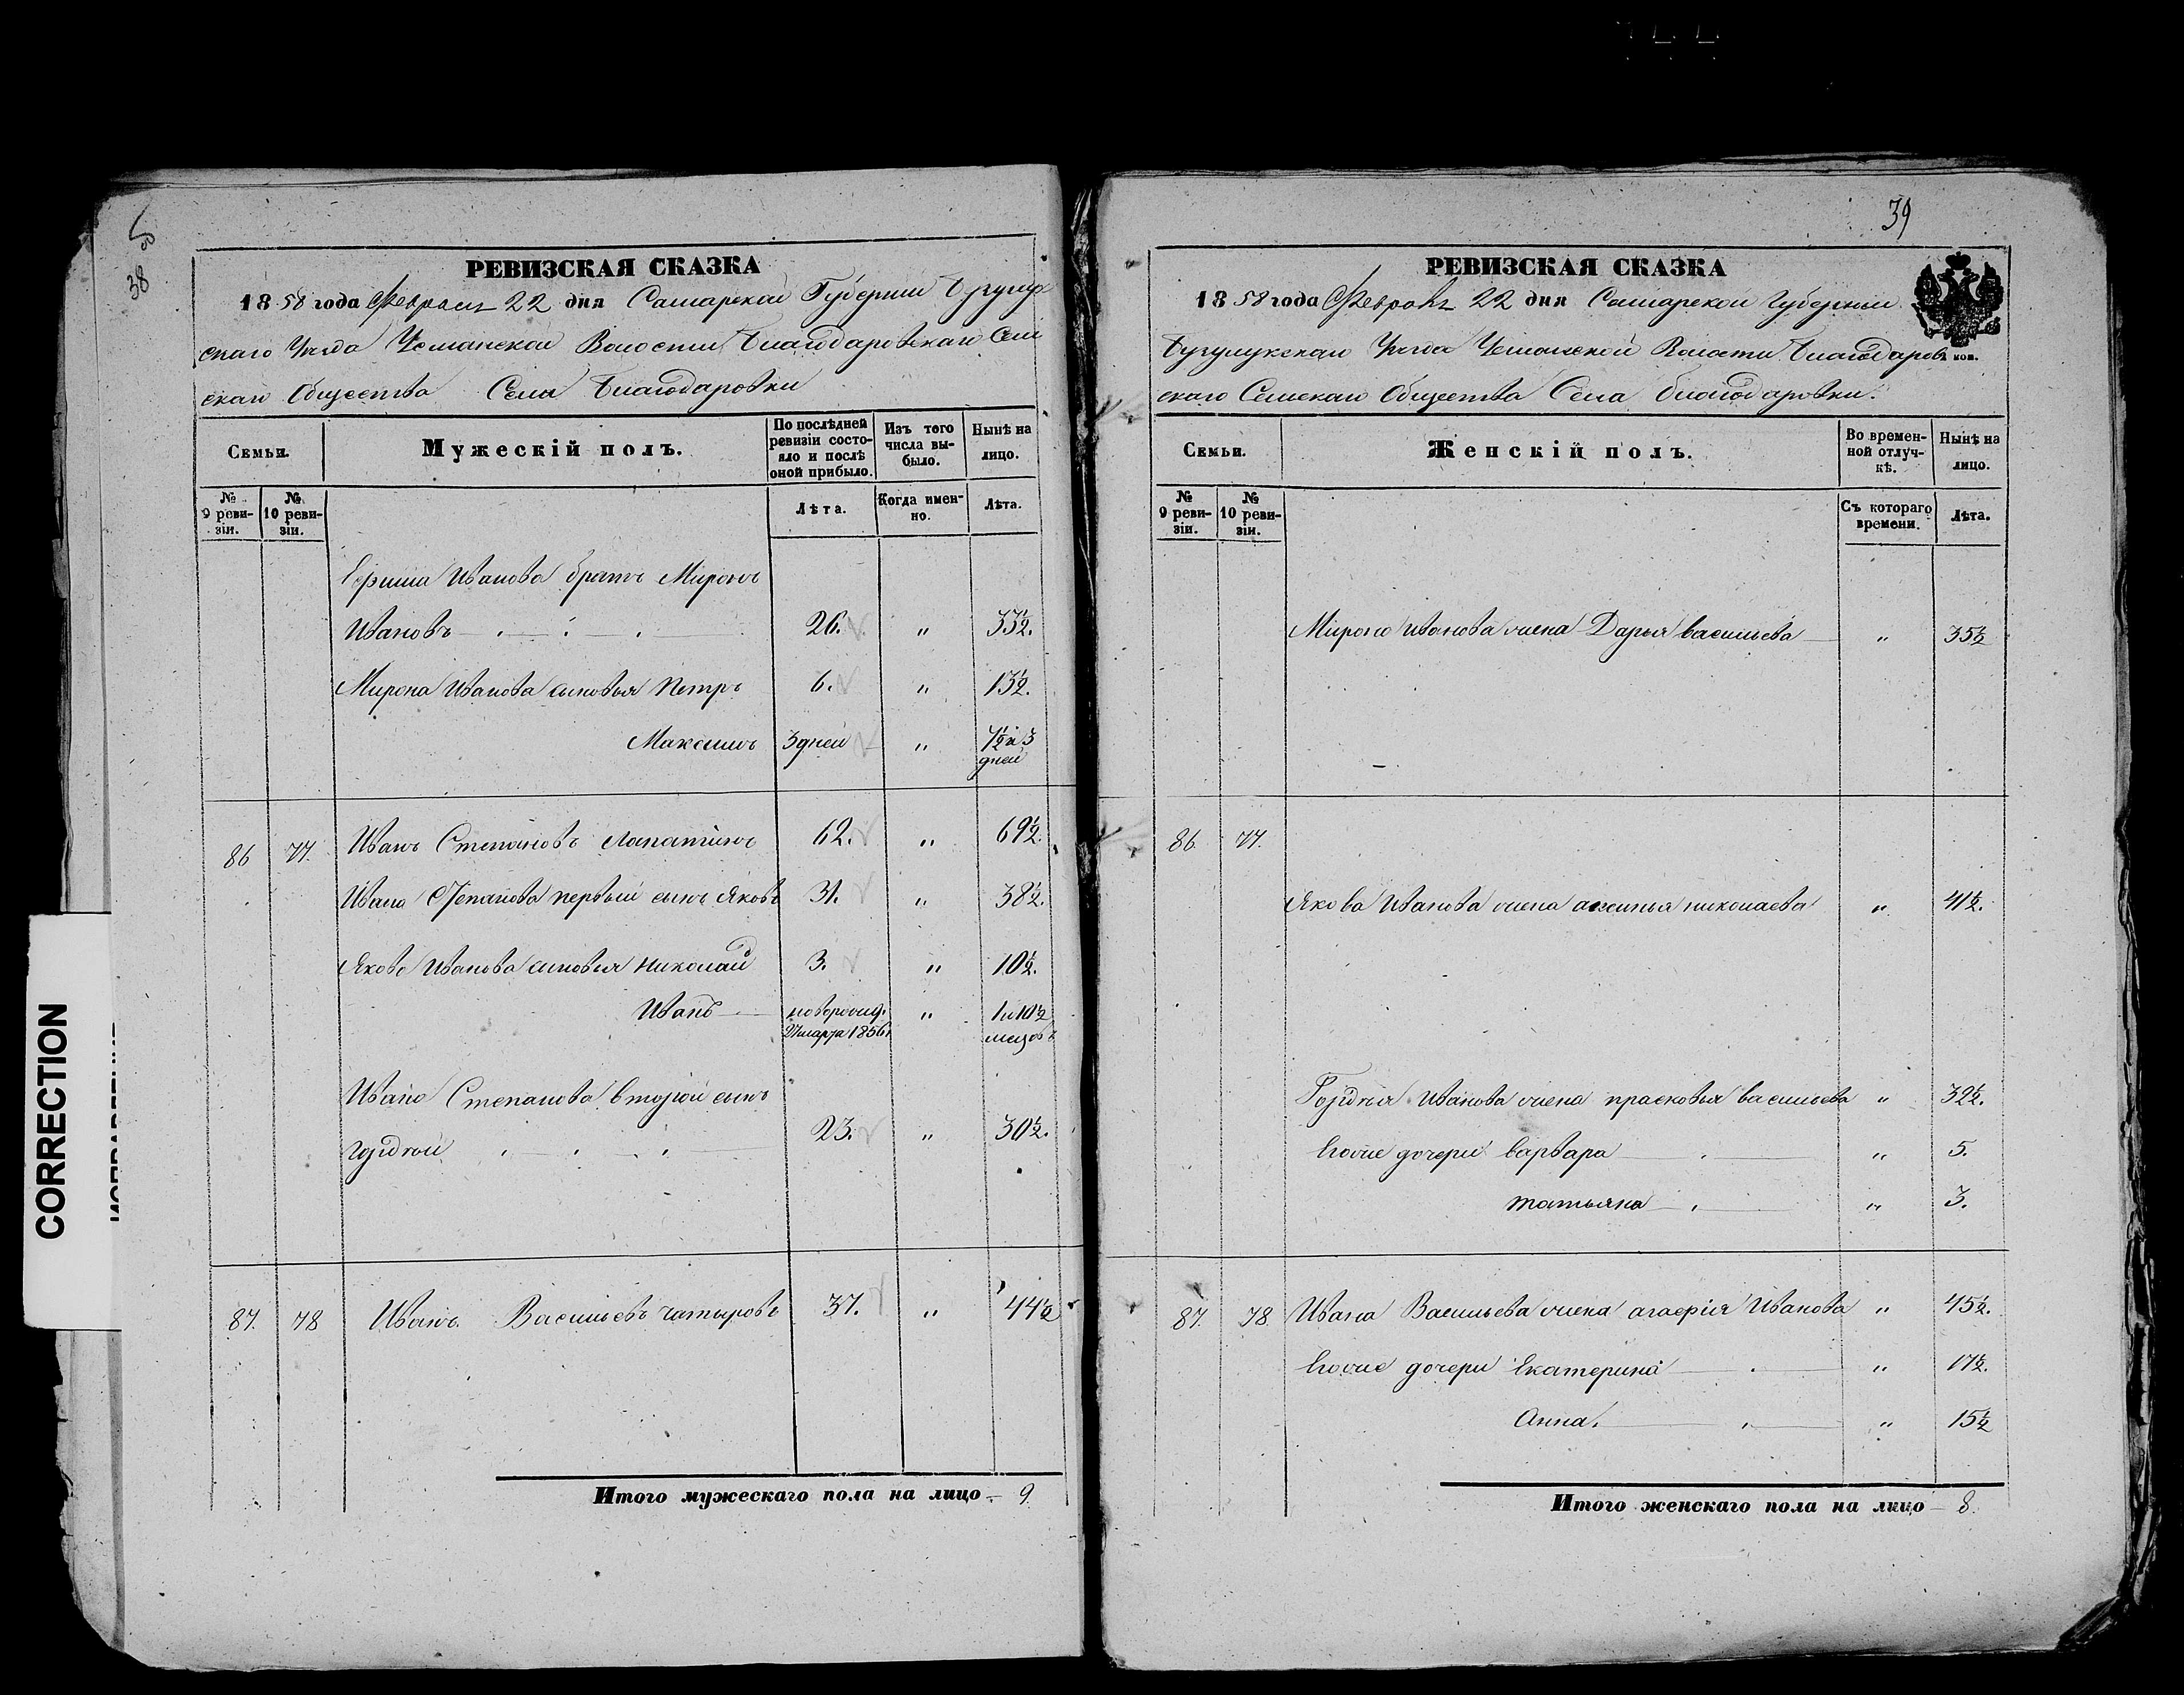 38
РЕВИЗСКАЯ СКАЗКА
1858 года Февраля 22 дня Самарской Губерніи Бугурус
скаго Уезда Волости Благодаровскаго Сель
скаго Общества Села Благодаровки
Семьи.
Мужескій полъ.
По послѣдней ревизіи состояло и послѣ оной прибыло.
Изъ того числа выбыло.
Нынѣ на лицо.
№ 9 ревизіи.
№ 10 ревизіи.
Лѣта.
Когда именно.
Лѣта.
Ефима Иванова братъ Миронъ
Ивановъ 26. " 33½.
Мирона Иванова сыновья Петръ 6. " 13½.
Максимъ 3 дней " 7½ и 3 дней
86 77. Иванъ Степановъ Лапатинъ 62. " 69½.
Ивана Степанова первый сынъ Яковъ 31. " 38½.
Якова Иванова сыновья Николай 3. " 10½.
Иванъ новорожд. марта 1856 " 1 и 10½ месяцовъ
Ивана Степанова второй сынъ
Гордей 23. " 30½.
87. 78 Иванъ Васильевъ Чатыровъ 37. " 44½
Итого мужескаго пола на лицо 9.
39
РЕВИЗСКАЯ СКАЗКА
1858 года Февраля 22 дня Самарской Губерніи
Уезда Волости Благодаров
скаго Сельскаго Общества Села Благодаровки.
коп.
Семьи.
Женскій полъ.
Во временной отлучкѣ.
Нынѣ на лицо.
№ 9 ревизіи.
№ 10 ревизіи.
Съ котораго времени.
Лѣта.
Мирона Иванова жена Дарья Васильева " 35½
86. 77.
Якова Иванова жена Аксинья Николаева " 41½.
Гордея Иванова жена Прасковья Васильева " 32½.
Егоже дочери Варвара " 5.
Татьяна " 3.
87. 78. Ивана Васильева жена Агафія Иванова " 45½.
Егоже дочери Екатерина " 17½.
Анна. " 15½
Итого женскаго пола на лицо 8.
CORRECTION